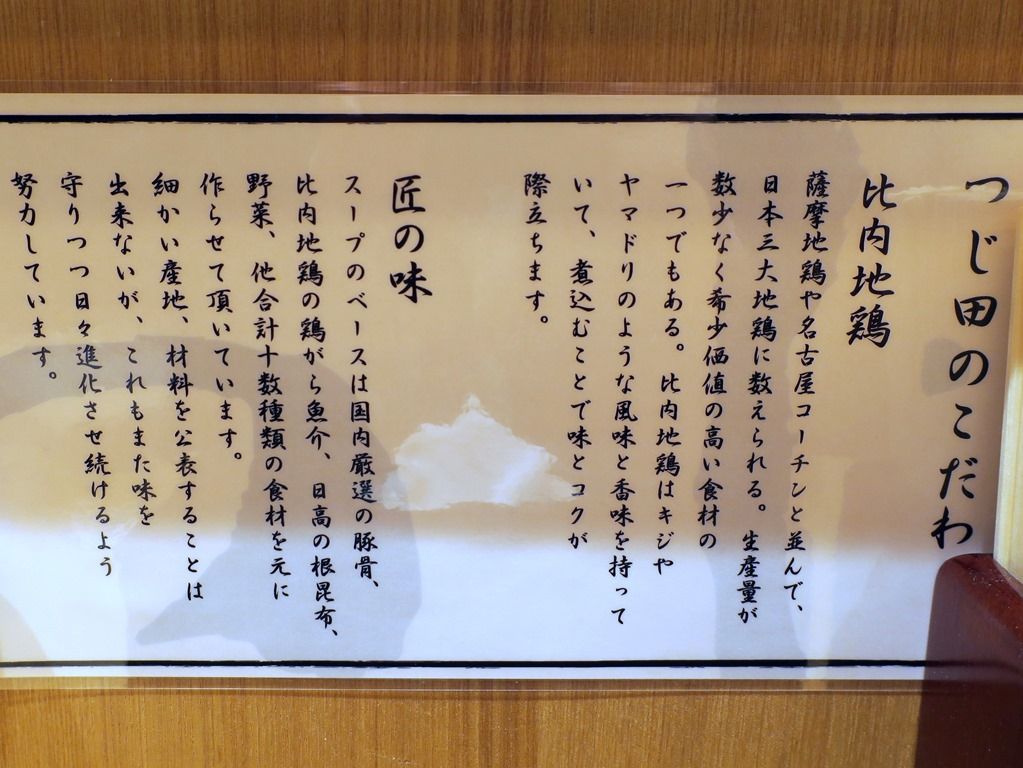 つじ田のこだわ
比内地鶏
薩摩地鶏や名古屋コーチンと並んで、
日本三大地鶏に数えられる。生産量が
数少なく希少価値の高い食材の
一つでもある。比内地鶏はキジや
ヤマドリのような風味と香味を持って
いて、煮込むことで味とコクが
際立ちます。
匠の味
スープのベースは国内厳選の豚骨、
比内地鶏の鶏がら魚介、日高の根昆布、
野菜、他合計十数種類の食材を元に
作らせて頂いています。
細かい産地、材料を公表することは
出来ないが、これもまた味を
守りつつ日々進化させ続けるよう
努力しています。